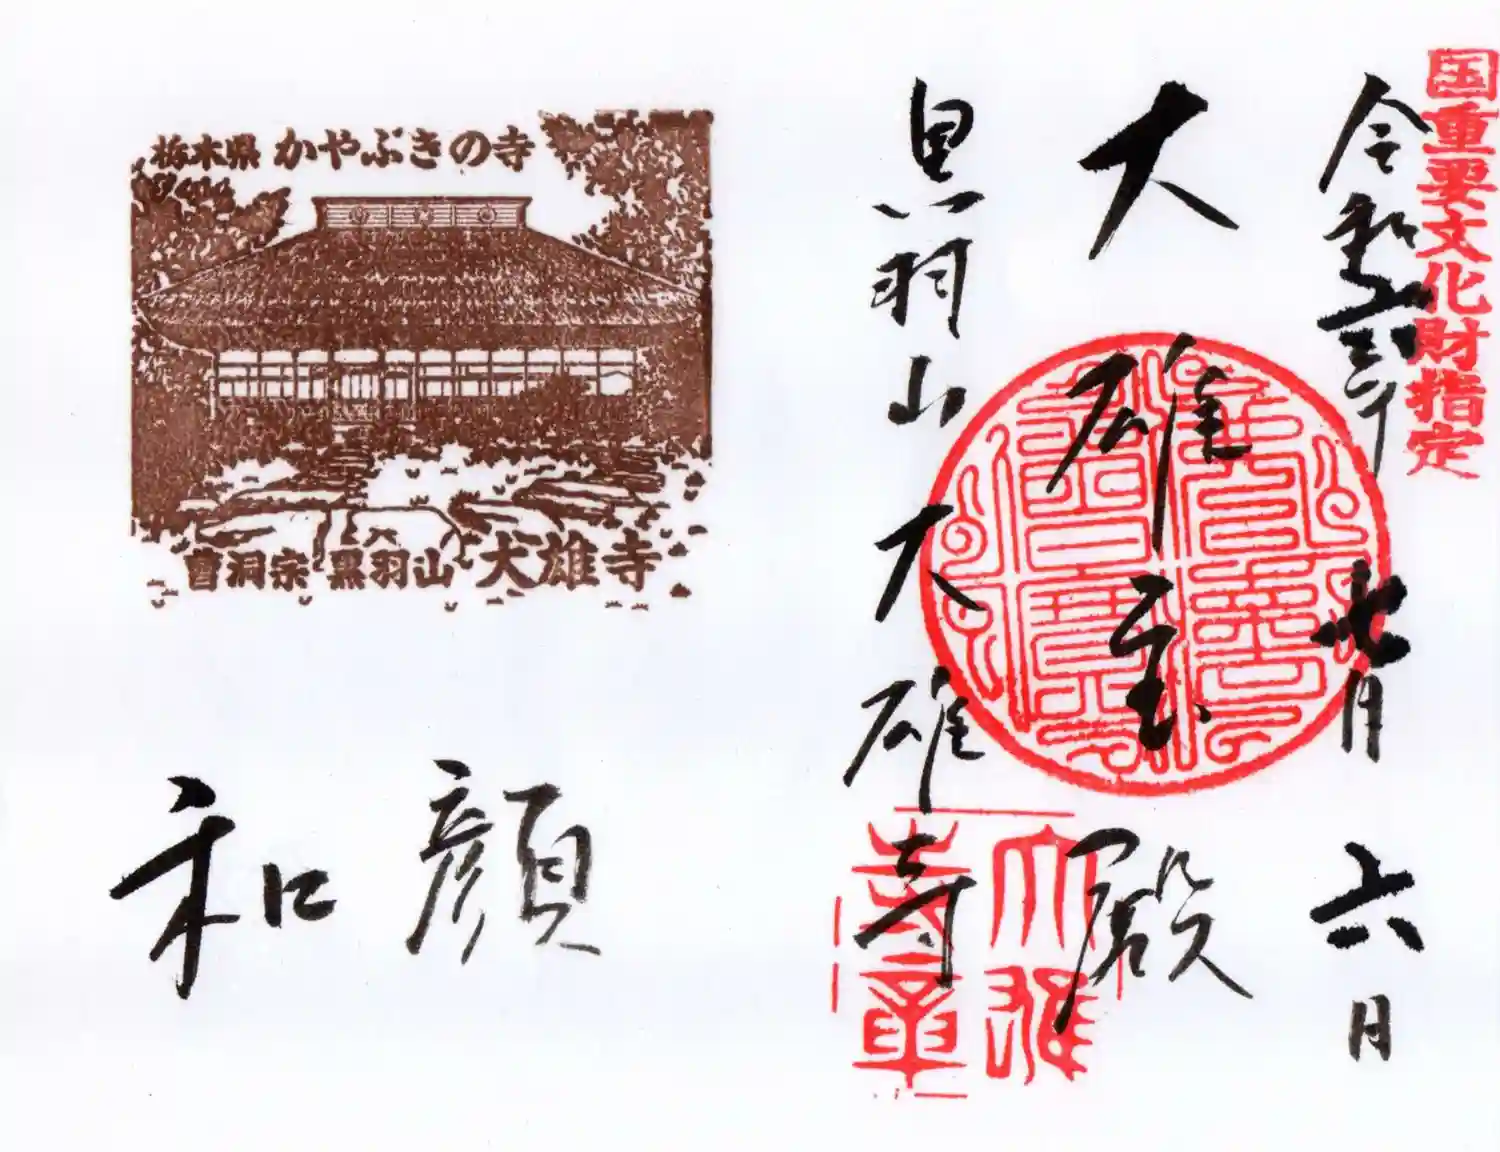 国重要文化財指定
令和六年 七月 六日
大雄宝殿
黒羽山 大雄寺
大雄寺章
栃木県 かやぶきの寺
曹洞宗 黒羽山 大雄寺
和顔